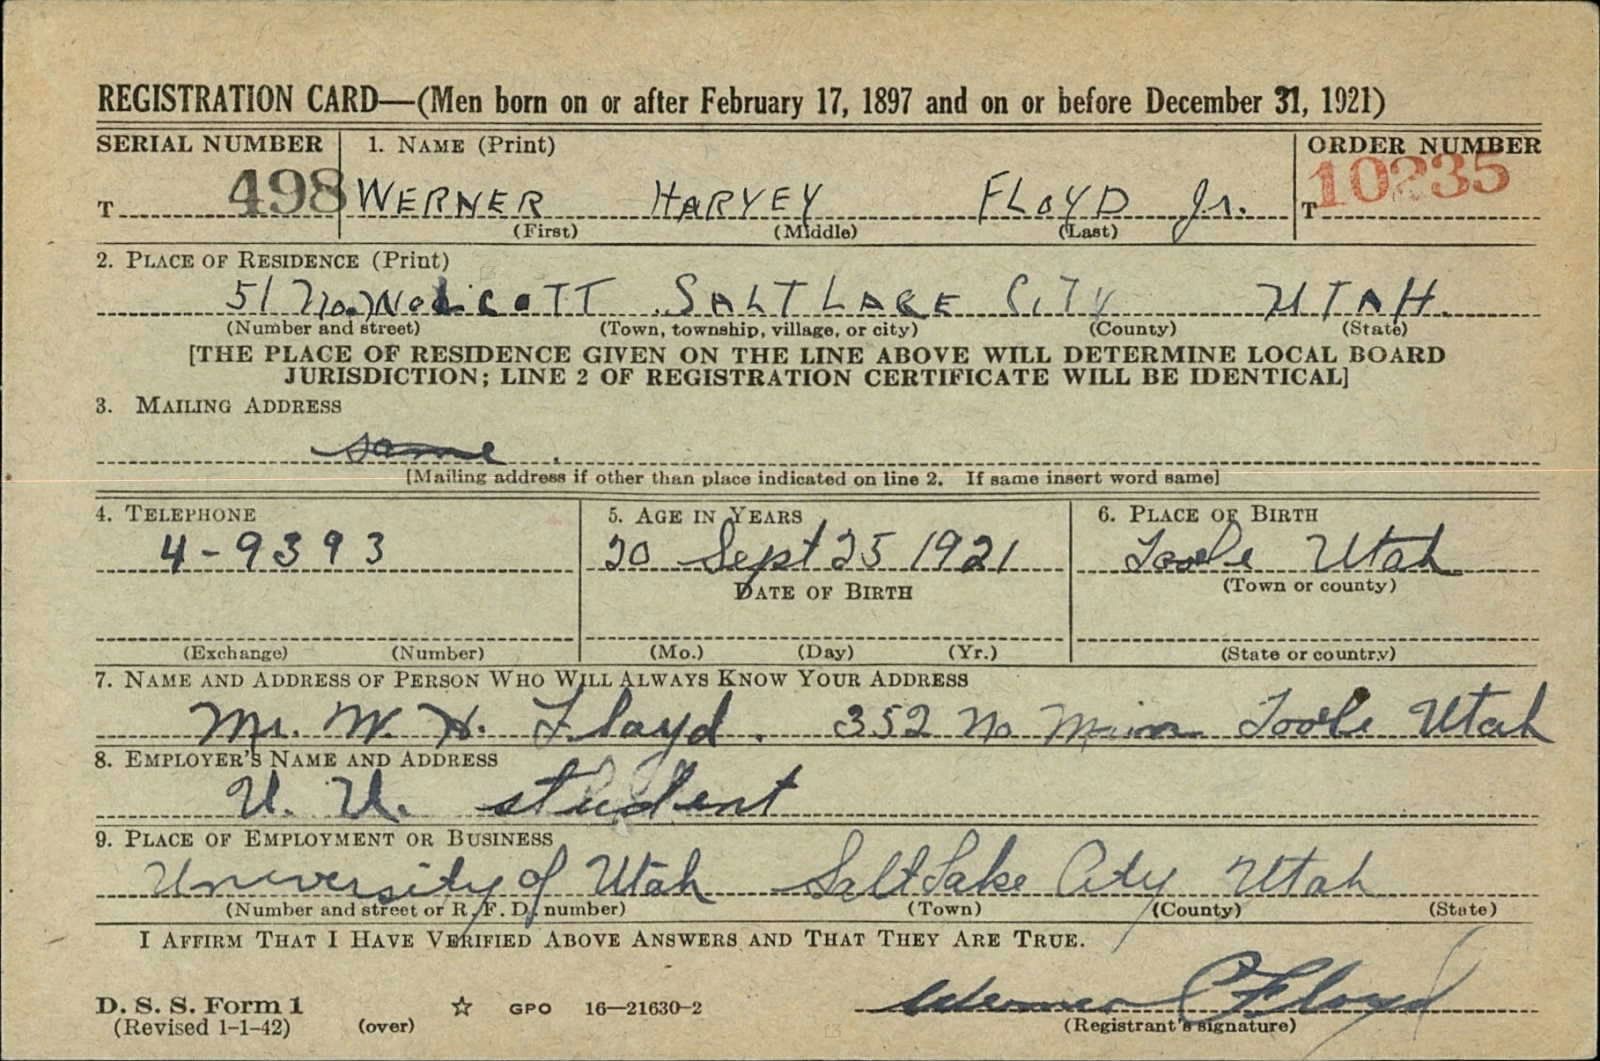 REGISTRATION CARD—(Men born on or after February 17, 1897 and on or before December 31, 1921)
SERIAL NUMBER 1. NAME (Print) ORDER NUMBER
T 498 WERNER HARVEY FLOYD Jr. T 10235
(First) (Middle) (Last)
2. PLACE OF RESIDENCE (Print)
51 No. SALT LAKE CITY UTAH.
(Number and street) (Town, township, village, or city) (County) (State)
[THE PLACE OF RESIDENCE GIVEN ON THE LINE ABOVE WILL DETERMINE LOCAL BOARD
JURISDICTION; LINE 2 OF REGISTRATION CERTIFICATE WILL BE IDENTICAL]
3. MAILING ADDRESS
same.
[Mailing address if other than place indicated on line 2. If same insert word same]
4. TELEPHONE 5. AGE IN YEARS 6. PLACE OF BIRTH
4-9393 20 Sept 25 1921 Tooele Utah
DATE OF BIRTH (Town or county)
(Exchange) (Number) (Mo.) (Day) (Yr.) (State or country)
7. NAME AND ADDRESS OF PERSON WHO WILL ALWAYS KNOW YOUR ADDRESS
Mr. W. H. Floyd. 352 No Main Tooele Utah
8. EMPLOYER'S NAME AND ADDRESS
U. U. student
9. PLACE OF EMPLOYMENT OR BUSINESS
University of Utah Salt Lake City Utah
(Number and street or R. F. D. number) (Town) (County) (State)
I AFFIRM THAT I HAVE VERIFIED ABOVE ANSWERS AND THAT THEY ARE TRUE.
D. S. S. Form 1 ☆ GPO 16—21630-2 Werner Floyd
(Revised 1-1-42) (over) (Registrant's signature)